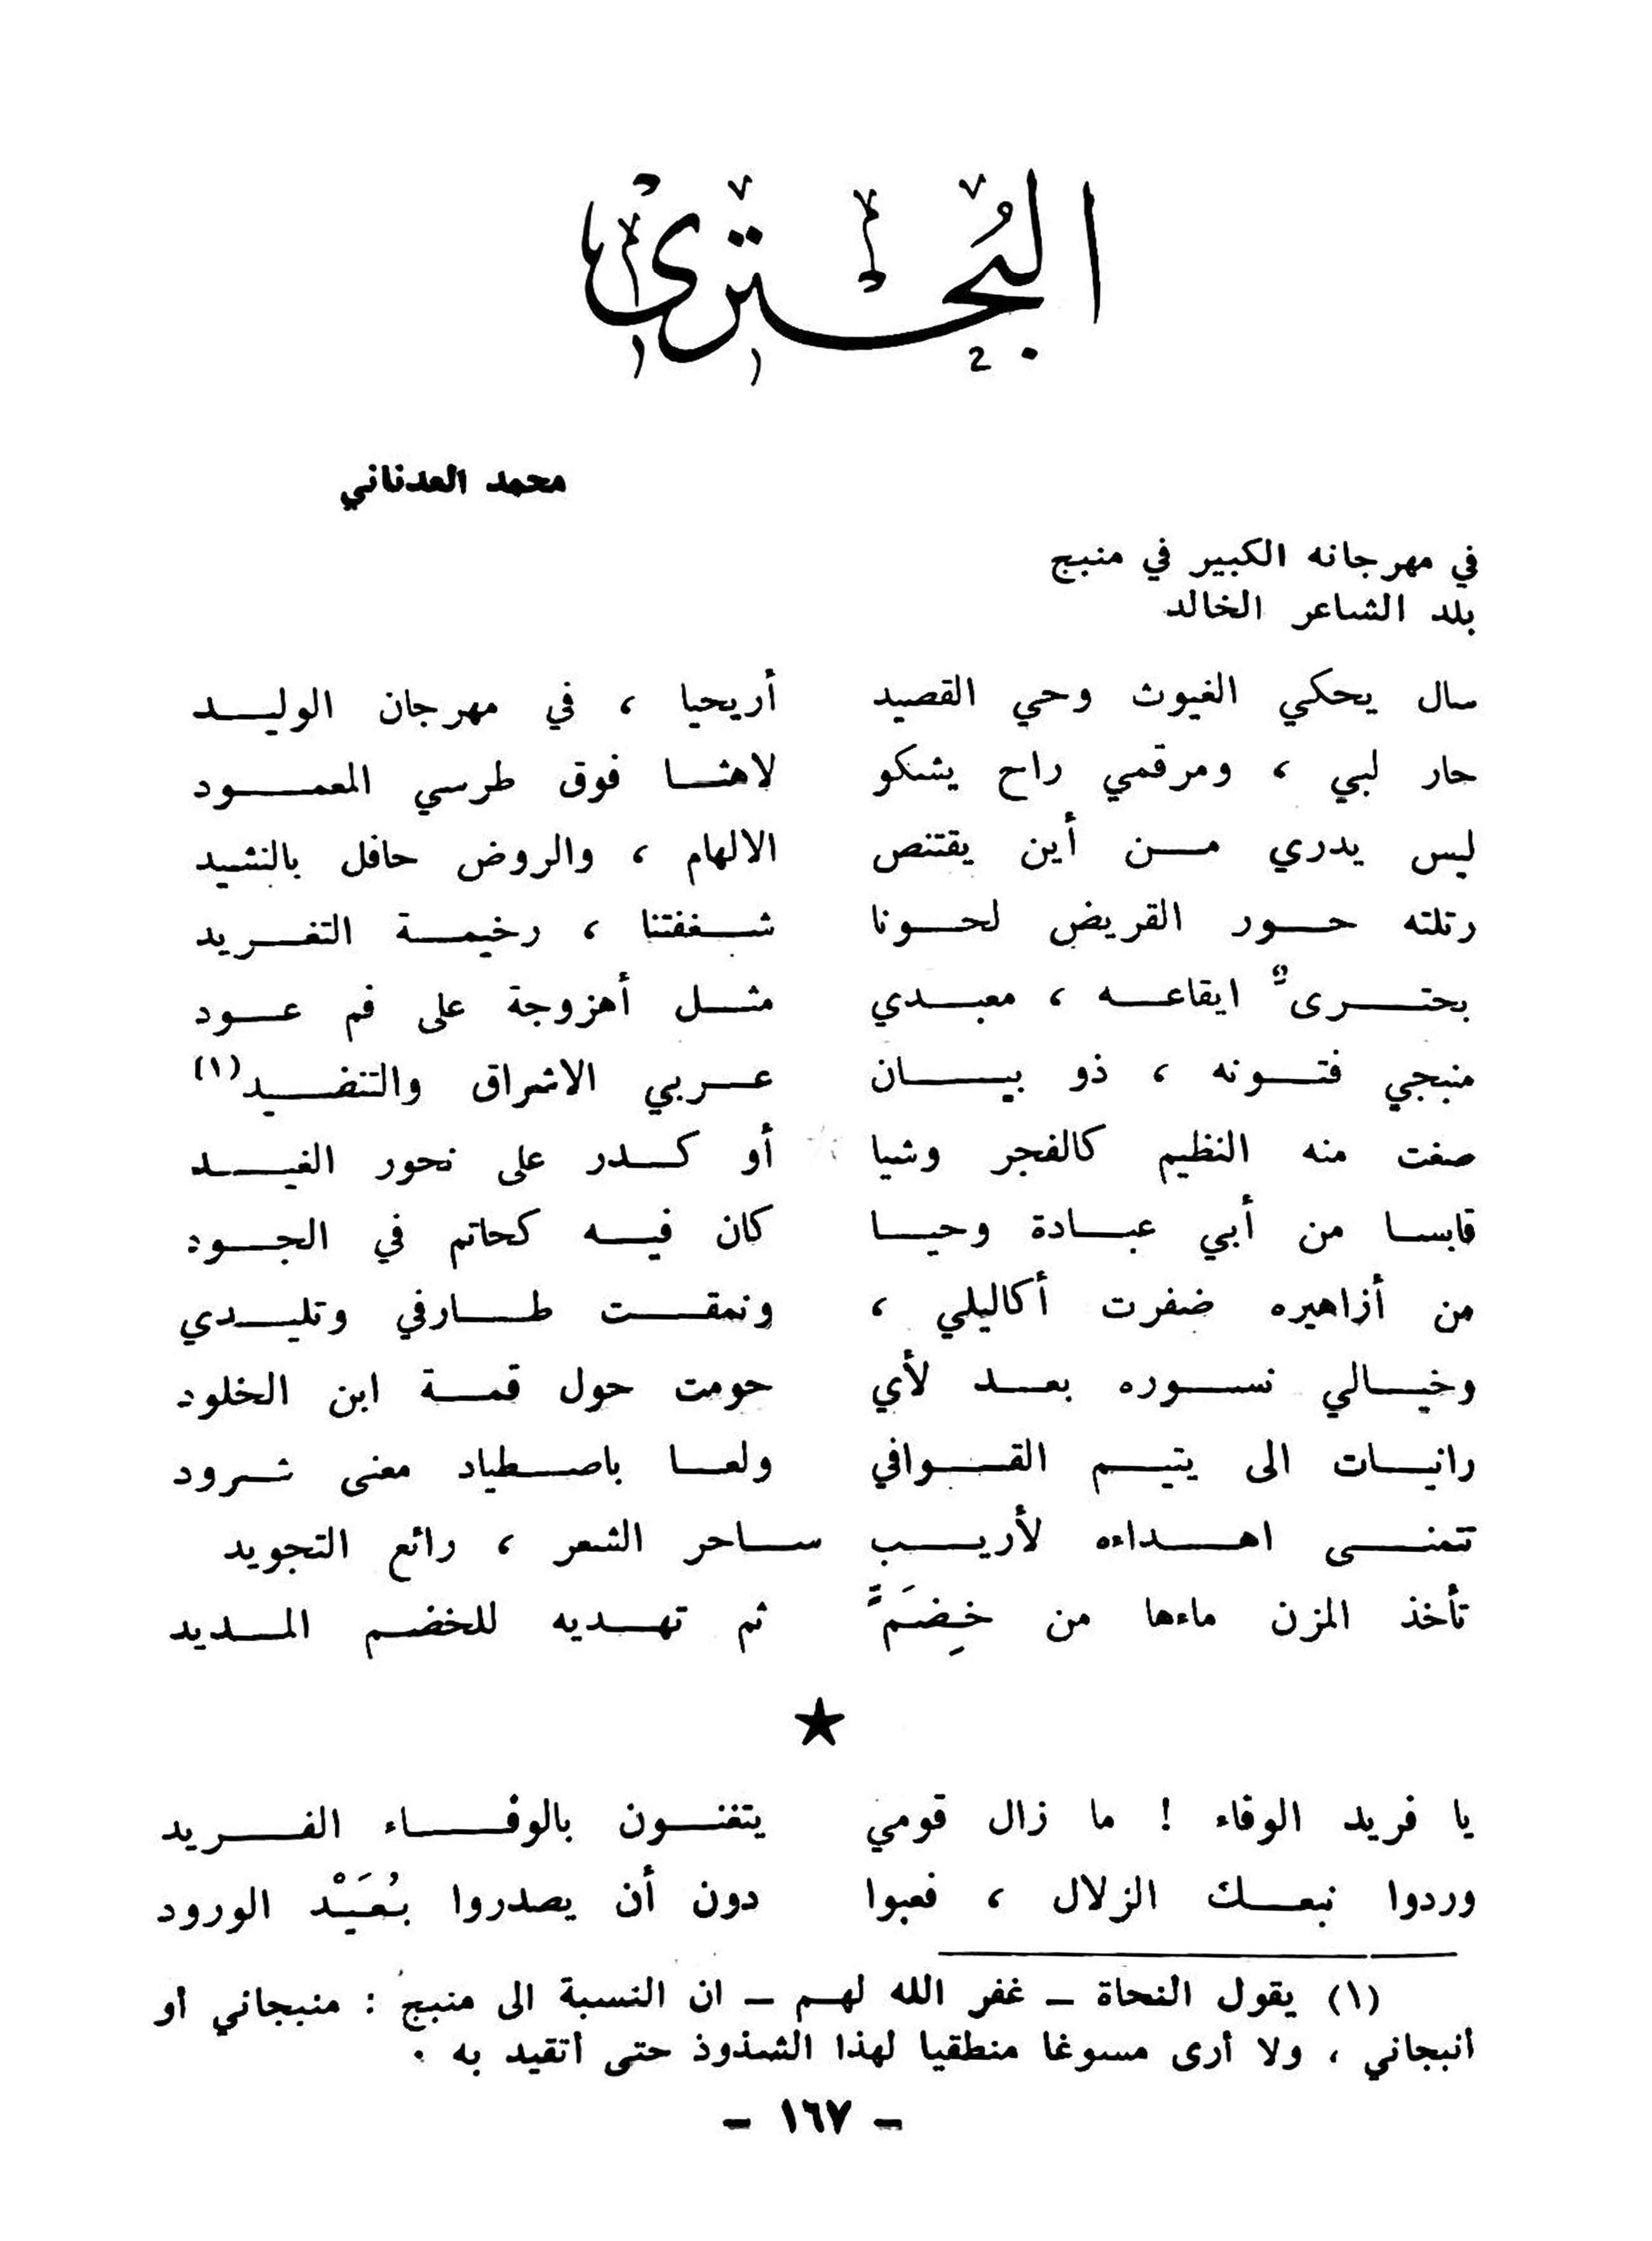 البُحتري
محمد العدناني
في مهرجانه الكبير في منبج
بلد الشاعر الخالد
سال يحكي الغيوث وحي القصيد أريحيا ، في مهرجان الوليد
حار لبي ، ومرقمي راح يشكو لاهثا فوق طرسي المعمود
ليس يدري من أين يقتنص الالهام ، والروض حافل بالنشيد
رتلته حور القريض لحونا شغفتنا ، رخيمة التغريد
بحترىٌّ ايقاعه ، معبدي مثل أهزوجة على فم عود
منبجي فتونه ، ذو بيان عربي الاشراق والتنضيد(١)
صغت منه النظيم كالفجر وشيا أو كدر على نحور الغيد
قابسا من أبي عبادة وحيا كان فيه كحاتم في الجود
من أزاهيره ضفرت أكاليلي ، ونمقت طارفي وتليدي
وخيالي نسوره بعد لأي حومت حول قمة ابن الخلود
رانيات الى يتيم القوافي ولعا باصطياد معنى شرود
تتمنى اهداءه لأريب ساحر الشعر ، رائع التجويد
تأخذ المزن ماءها من خِضَمٍّ ثم تهديه للخضم المديد
★
يا فريد الوفاء ! ما زال قومي يتغنون بالوفاء الفريد
وردوا نبعك الزلال ، فعبوا دون أن يصدروا بُعَيْد الورود
(١) يقول النحاة – غفر الله لهم – ان النسبة الى منبج : منبجاني أو
أنبجاني ، ولا أرى مسوغا منطقيا لهذا الشذوذ حتى أتقيد به .
– ١٦٧ –